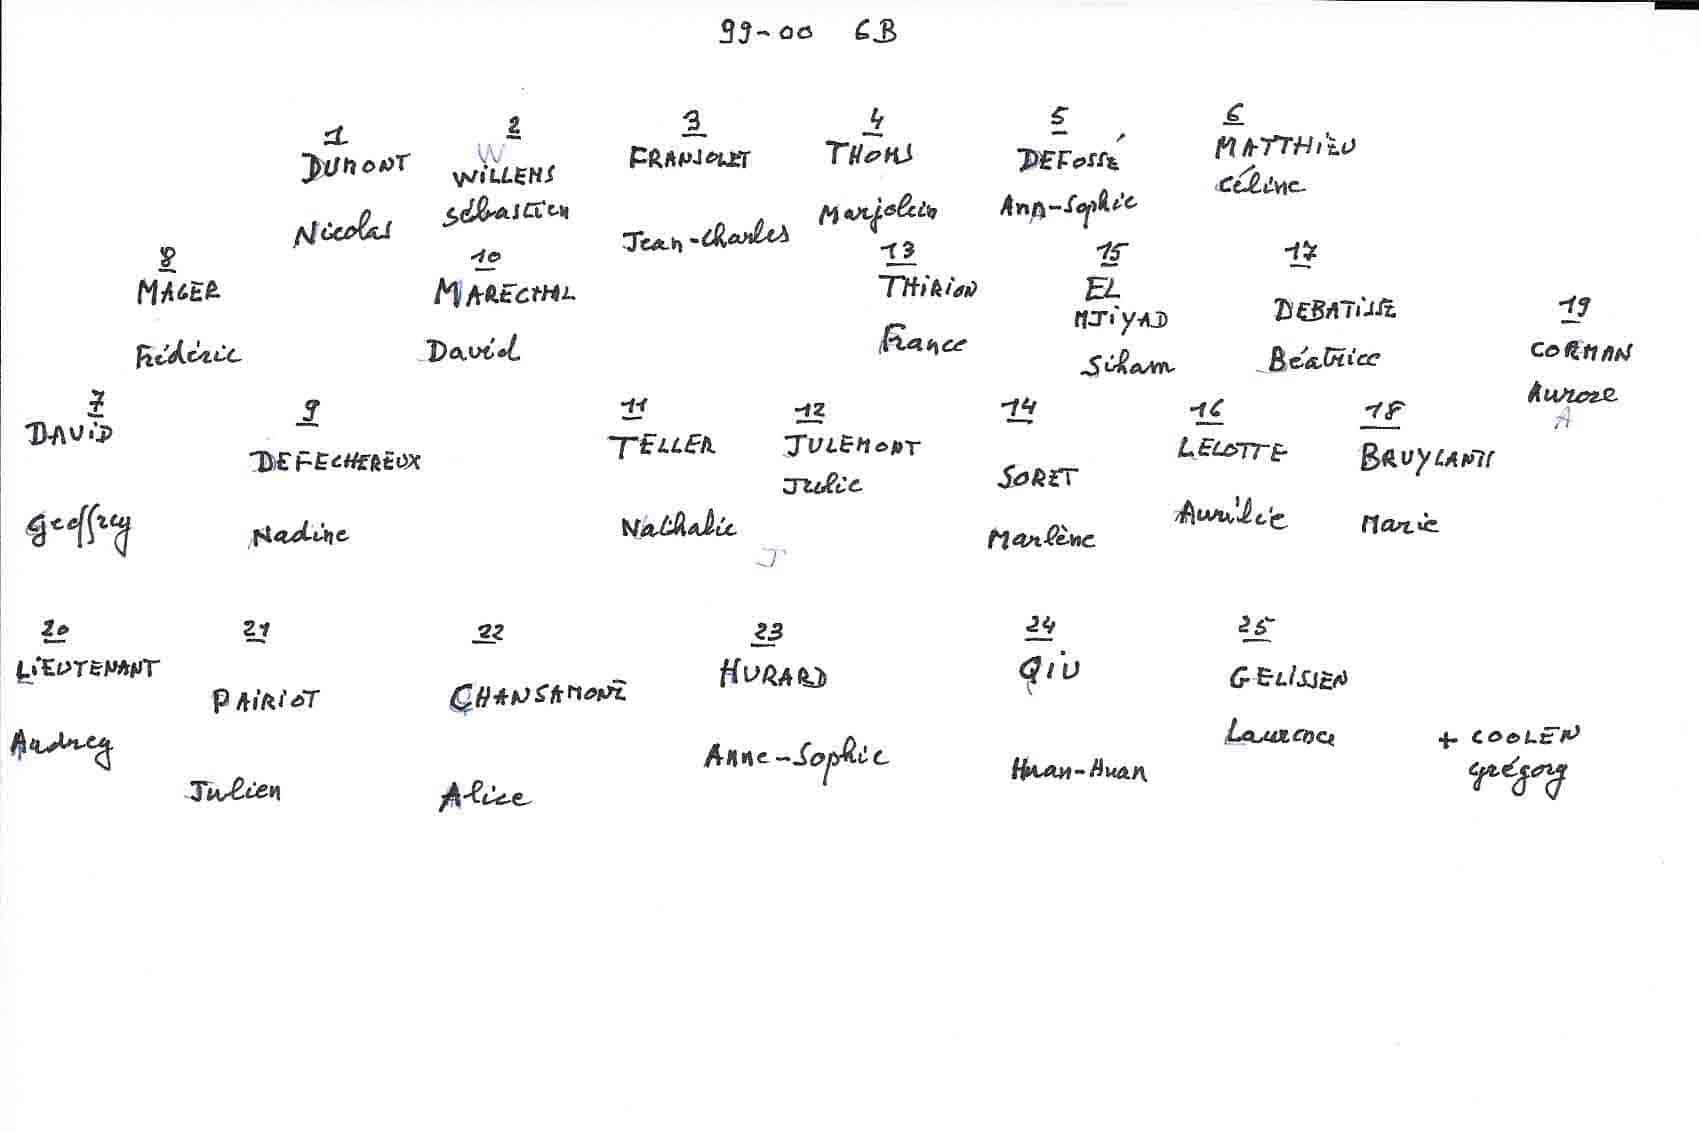 99-00 6B
1 2 3 4 5 6
DUMONT WILLEMS FRANSOLET THOMS DEFOSSÉ MATTHIEU
Nicolas Sébastien Jean-Charles Marjolein Ann-Sophie Céline
8 10 13 15 17 19
MAGER MARECHAL THIRION EL MJIYAD DEBATISSE CORMAN
Frédéric David France Siham Béatrice Aurore
7 9 11 12 14 16 18
DAVID DEFECHEREUX TELLER JULEMONT SORET LELOTTE BRUYLANTS
Geoffrey Nadine Nathalie Julie Marlène Aurélie Marie
20 21 22 23 24 25
LIEUTENANT PAIRIOT CHANSAMONE HURARD QIU GELISSEN + COOLEN
Audrey Julien Alice Anne-Sophie Huan-Huan Laurence Grégory